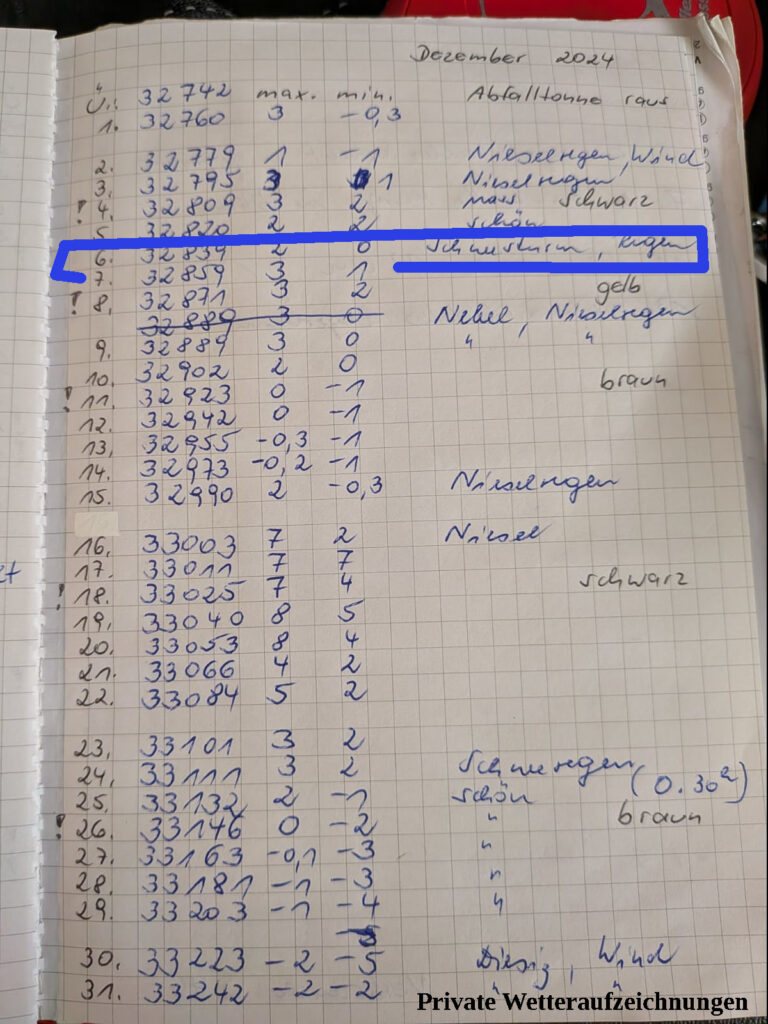 Dezember 2024
Ü.: 32742 max. min. Abfalltonne raus
1. 32760 3 -0,3
2. 32779 1 -1 Nieselregen, Wind
3. 32795 3 1 Nieselregen
! 4. 32809 3 2 nass schwarz
5. 32820 2 2 schön
6. 32839 2 0 Schneesturm, Regen
7. 32859 3 1
! 8. 32871 3 2 gelb
32889 3 0 Nebel, Nieselregen
9. 32889 3 0 " "
10. 32902 2 0
! 11. 32923 0 -1 braun
12. 32942 0 -1
13. 32955 -0,3 -1
14. 32973 -0,2 -1
15. 32990 2 -0,3 Nieselregen
16. 33003 7 2 Niesel
17. 33011 7 7
! 18. 33025 7 4 schwarz
19. 33040 8 5
20. 33053 8 4
21. 33066 4 2
22. 33084 5 2
23. 33101 3 2
24. 33111 3 2 Schneeregen (0.30h)
25. 33132 2 -1 schön
! 26. 33146 0 -2 " braun
27. 33163 -0,1 -3 "
28. 33181 -1 -3 "
29. 33203 -1 -4 "
30. 33223 -2 -5 Diesig, Wind
31. 33242 -2 -2 " "
Private Wetteraufzeichnungen